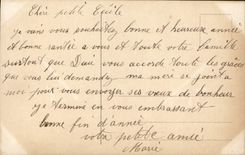 Chère petite Cécile
Je vous vous souhaitez bonne et heureuse année
et bonne santée a vous et toute votre famille
surtout que Dieu vous accorde toute les grâces
que vous lui demandez ma mère se joint a
moi pour vous envoyer ses vœux de bonheur
je termine en vous embrassant
bonne fin d'année
votre petite amie
Marie